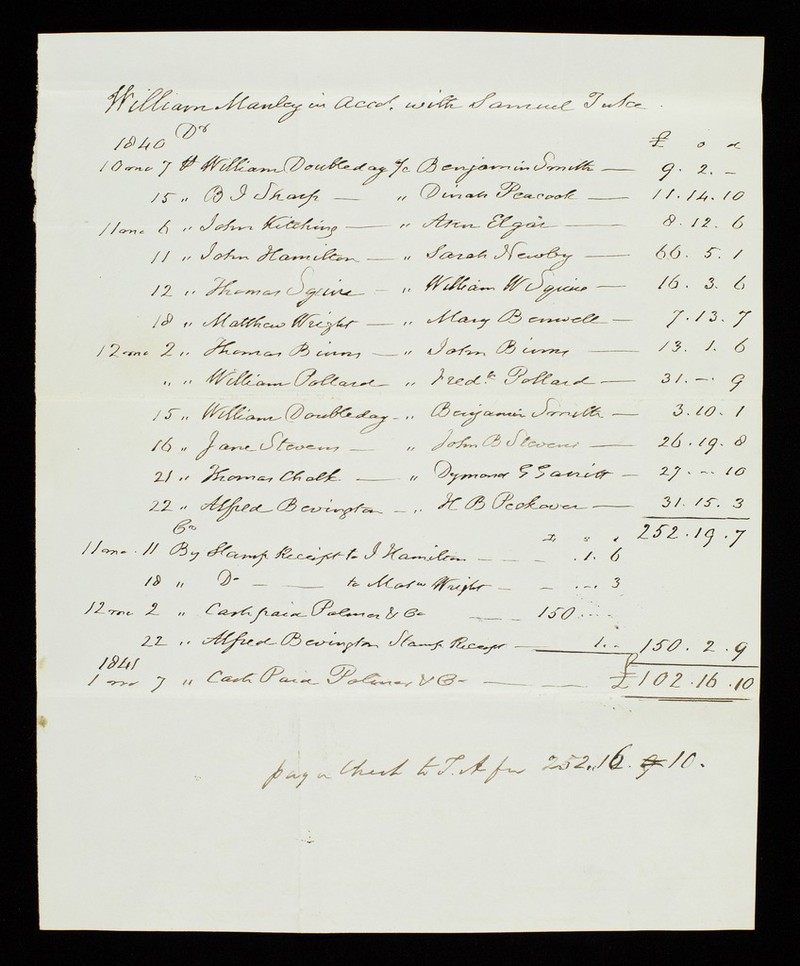 William Manley in Acct. with Samuel Tuke.
1840 Dr £ s d
10 mo 7 to William Doubleday a/c Benjamin Smith — 9. 2. –
15 " B J Sharp — " Dinah Peacock — 11. 14. 10
11 mo 6 " John Kitching — " Ann Elgar — 8. 12. 6
11 " John Hamilton — " Sarah Newby — 66. 5. 1
12 " Thomas Squire — " William W Squire — 16. 3. 6
18 " Matthew Wright — " Mary Benwell — 7. 13. 7
12 mo 2 " Thomas Binns — " John Binns — 13. 1. 6
" " William Pollard " Fredk Pollard — 31. – . 9
15 " William Doubleday — " Benjamin Smith — 3. 10. 1
16 " Jane Stevens — " John B Stevens — 26. 19. 8
21 " Thomas Chalk — " Dymond G — 27. – . 10
22 " Alfred Bevington — " H B Peckover — 31. 15. 3
Cr £ " " 252. 19. 7
11 mo. 11 By Stamp Receipt to J Hamilton — — – . 1. 6
18 " Do — — to Matw Wright — – . – . 3
12 mo 2 " Cash paid Palmer & Co — — 150 . . . .
22 " Alfred Bevington Stamp Receipt — 1. – 150. 2. 9
1841
1 mo 7 " Cash Paid Palmer & Co — — £102. 16. 10
pay a Check to T. A for 252. 16. 9 10.